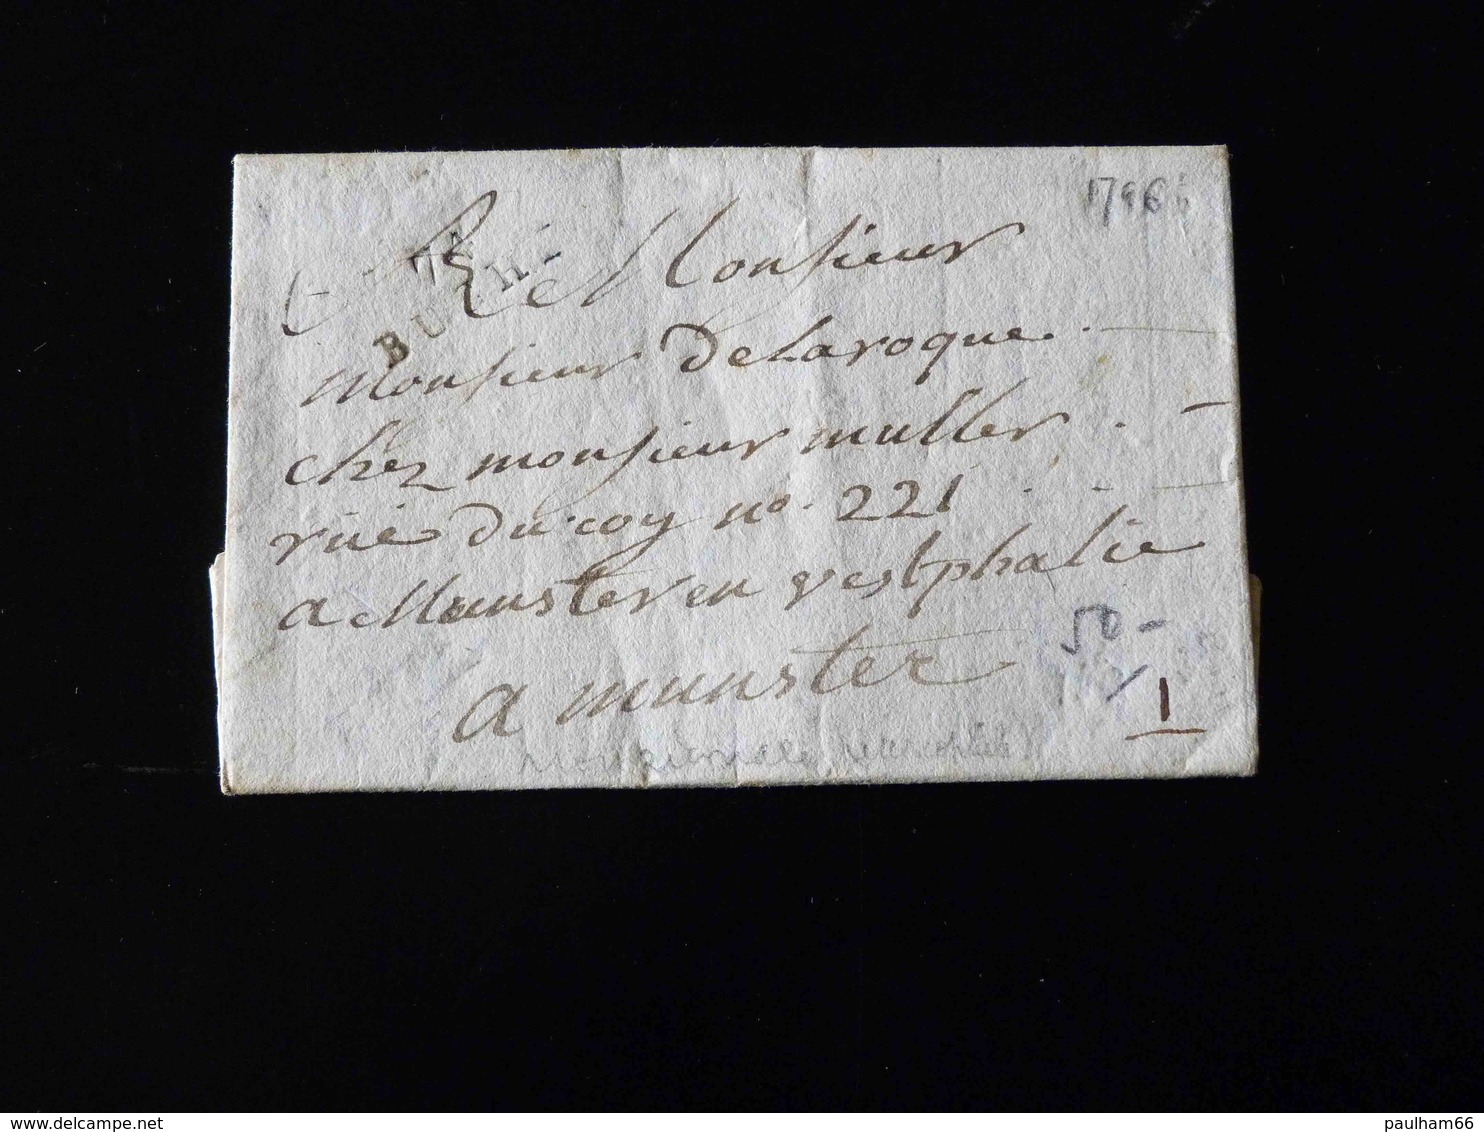 1796
74
A Monsieur
monsieur Delaroque
chez monsieur muller
rüe du coq no. 221
a Munster en vestphalie
a munster
50 -
1
delcampe.net
paulham66